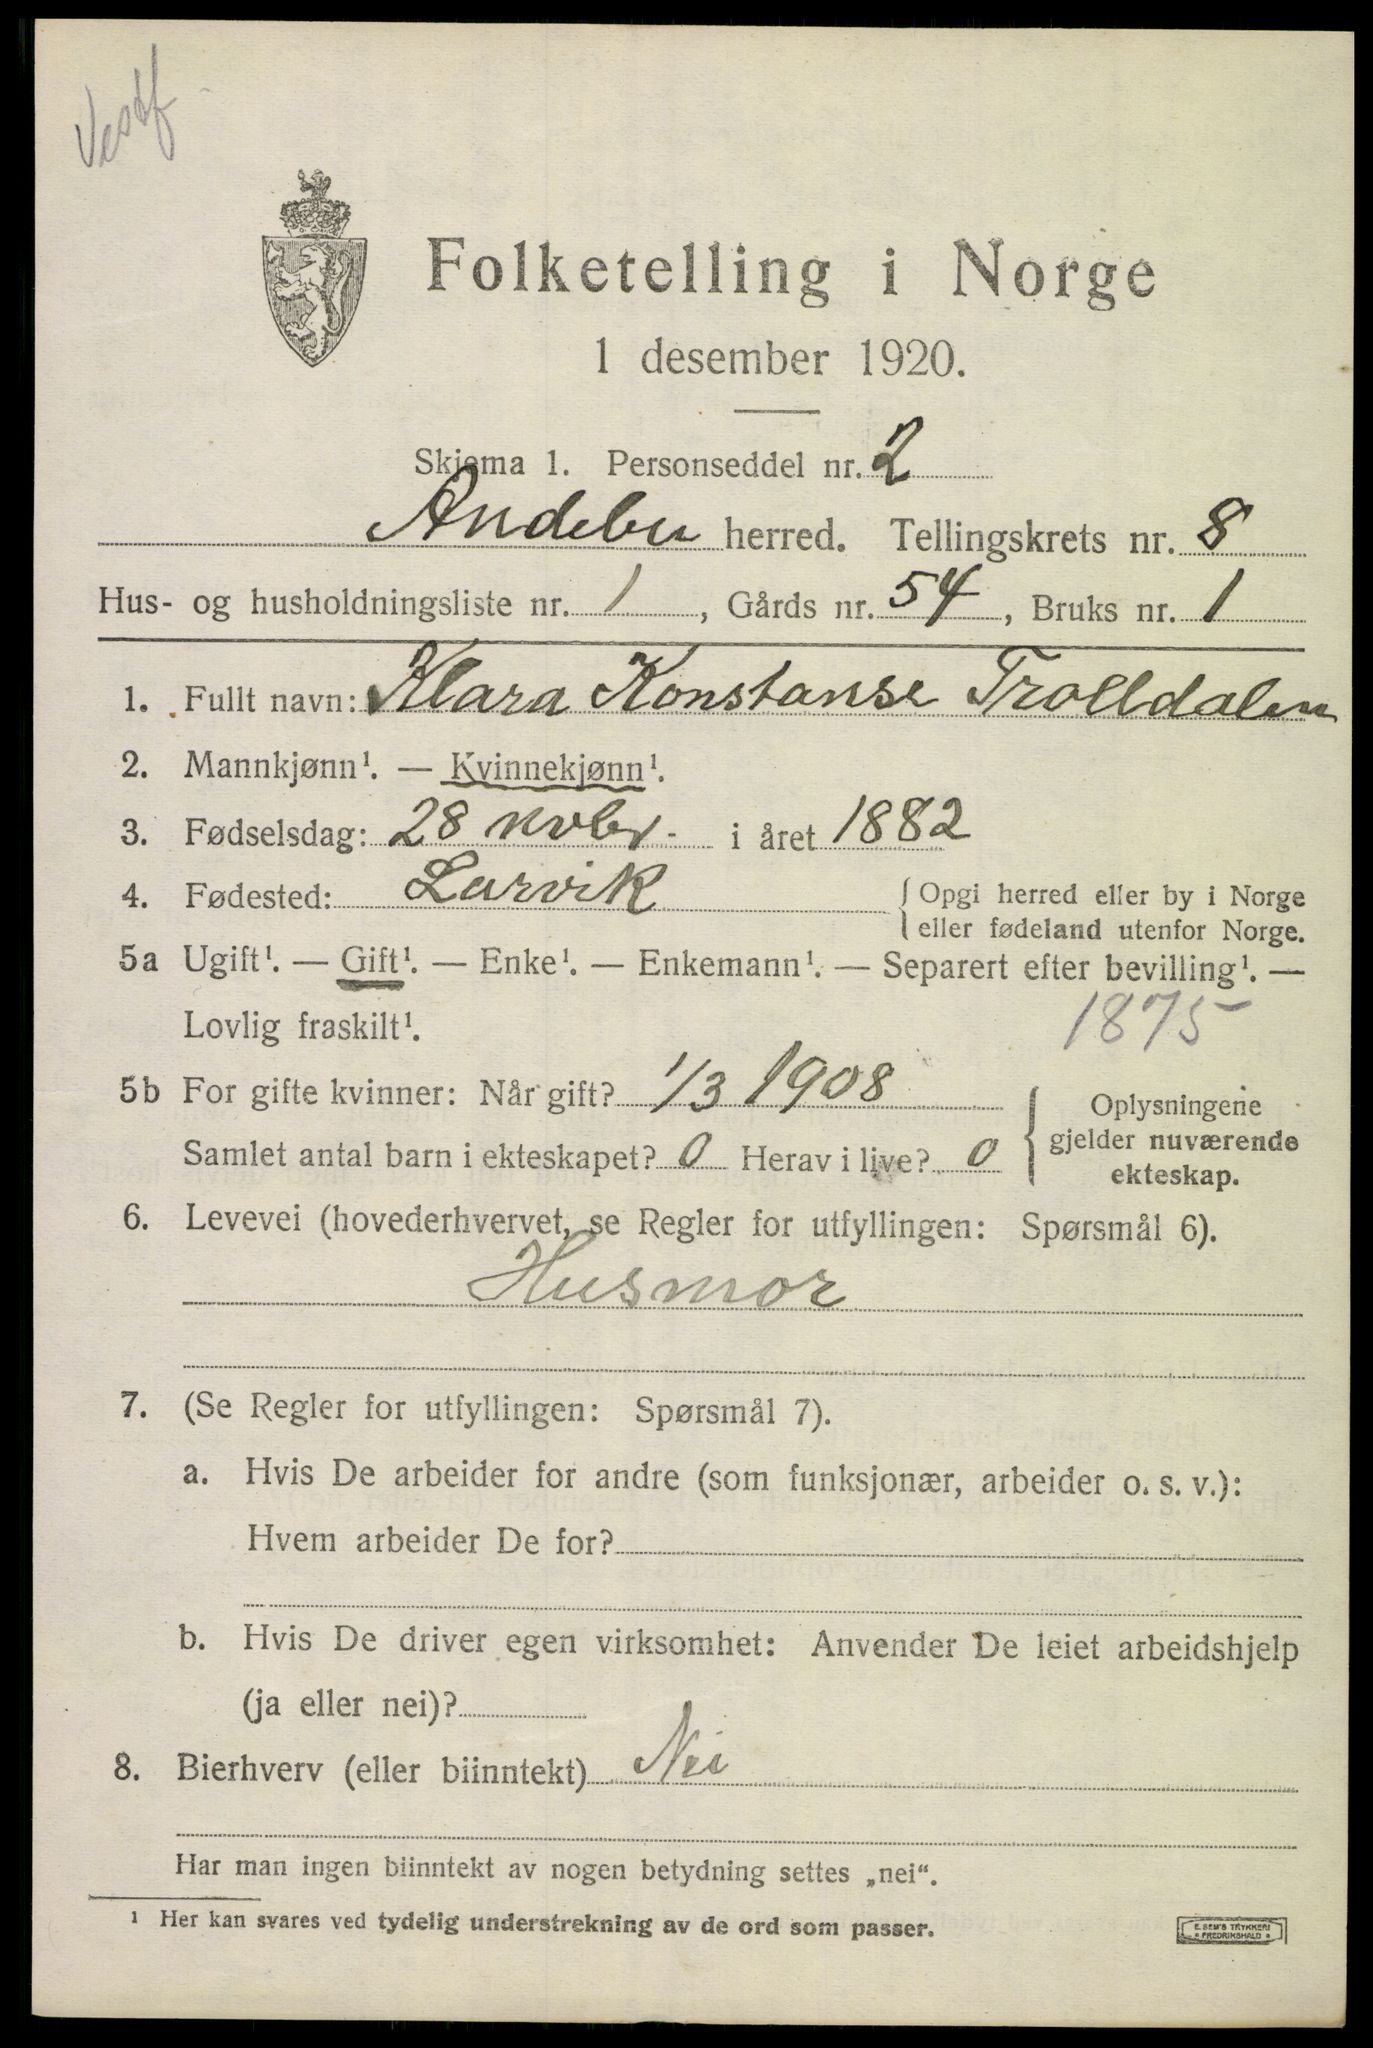 Vestf
Folketelling i Norge
1 desember 1920.
Skjema 1. Personseddel nr. 2
Andebu herred. Tellingskrets nr. 8
Hus- og husholdningsliste nr. 1, Gårds nr. 54, Bruks nr. 1
1. Fullt navn: Klara Konstanse Trolldalen
2. Mannkjønn¹. — Kvinnekjønn¹.
3. Fødselsdag: 28 novbr. i året 1882
4. Fødested: Larvik { Opgi herred eller by i Norge
eller fødeland utenfor Norge.
5a Ugift¹. — Gift¹. — Enke¹. — Enkemann¹. — Separert efter bevilling¹. —
Lovlig fraskilt¹. 1875
5b For gifte kvinner: Når gift? 1/3 1908
Samlet antal barn i ekteskapet? 0 Herav i live? 0
{ Oplysningene
gjelder nuværende
ekteskap.
6. Levevei (hovederhvervet, se Regler for utfyllingen: Spørsmål 6).
Husmor
7. (Se Regler for utfyllingen: Spørsmål 7).
a. Hvis De arbeider for andre (som funksjonær, arbeider o. s. v.):
Hvem arbeider De for?
b. Hvis De driver egen virksomhet: Anvender De leiet arbeidshjelp
(ja eller nei)?
8. Bierhverv (eller biinntekt) Nei
Har man ingen biinntekt av nogen betydning settes „nei“.
¹ Her kan svares ved tydelig understrekning av de ord som passer.
E. SEM'S TRYKKERI
FREDRIKSHALD